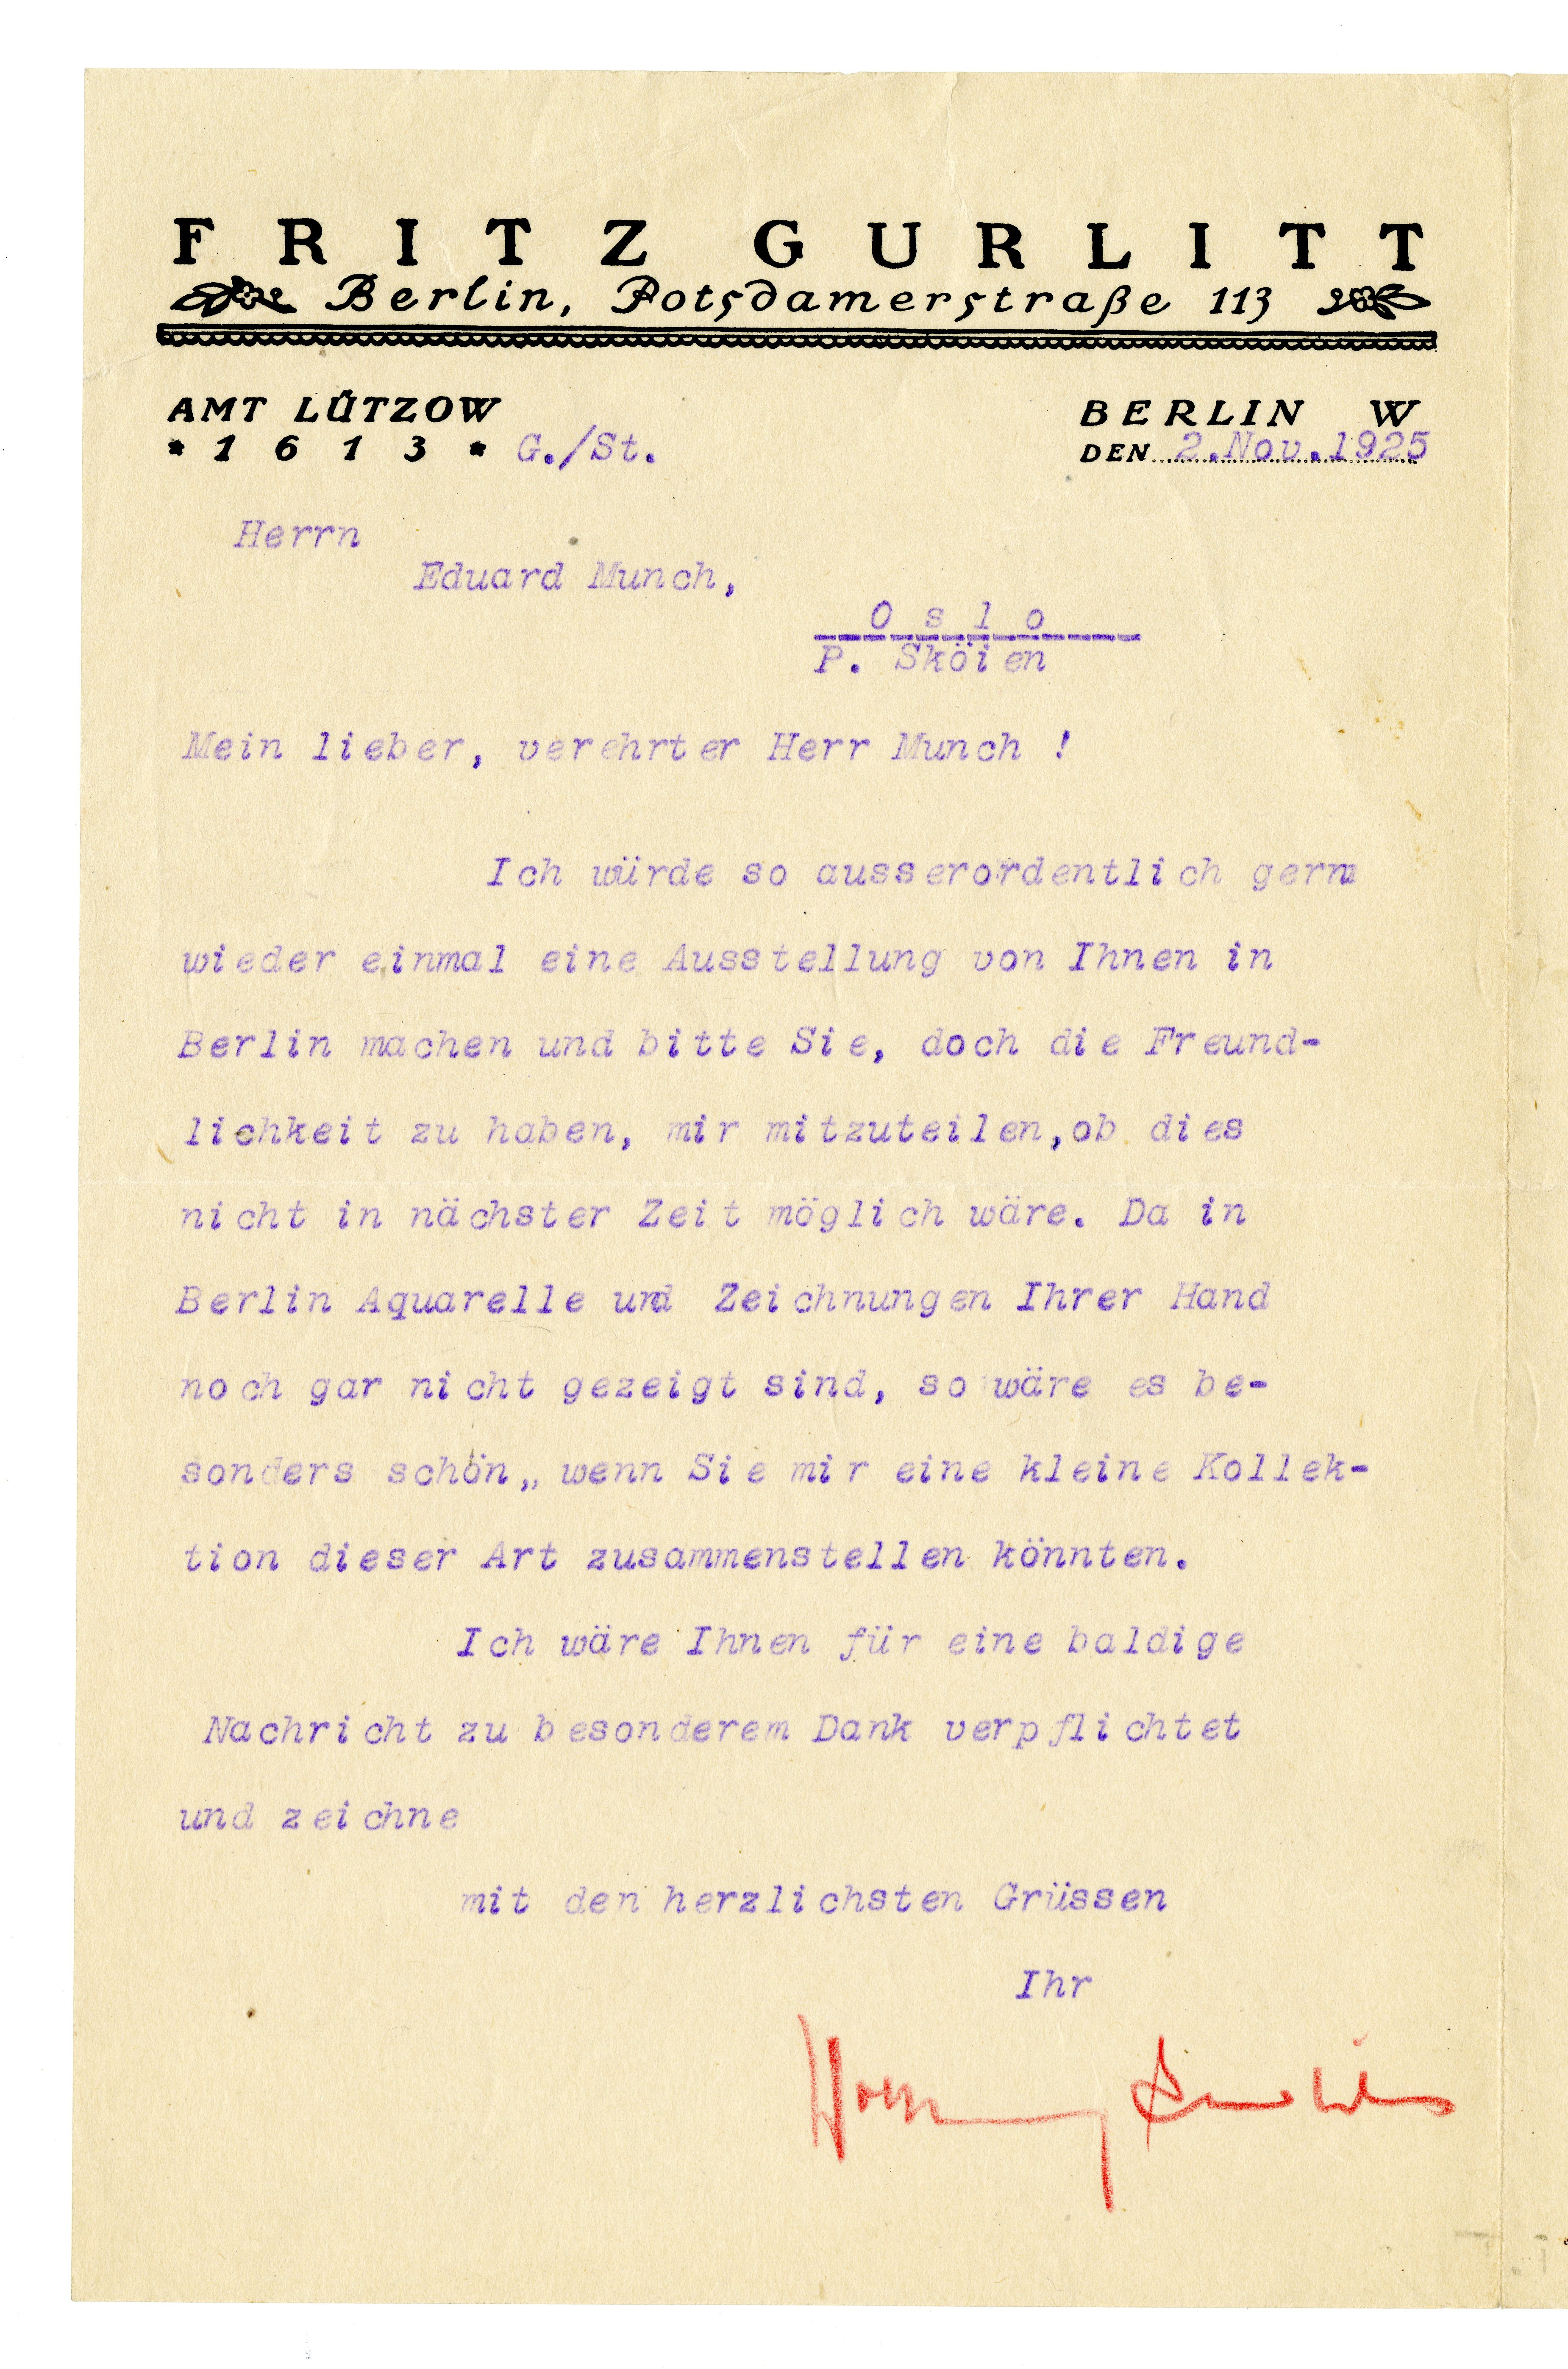 FRITZ GURLITT
Berlin, Potsdamerstraße 113
AMT LÜTZOW
* 1 6 1 3 * G./St.
BERLIN W
DEN 2.Nov.1925
Herrn
Eduard Munch,
O s l o
P. Sköien
Mein lieber, verehrter Herr Munch !
Ich würde so ausserordentlich gern
wieder einmal eine Ausstellung von Ihnen in
Berlin machen und bitte Sie, doch die Freund-
lichkeit zu haben, mir mitzuteilen,ob dies
nicht in nächster Zeit möglich wäre. Da in
Berlin Aquarelle und Zeichnungen Ihrer Hand
noch gar nicht gezeigt sind, so wäre es be-
sonders schön,, wenn Sie mir eine kleine Kollek-
tion dieser Art zusammenstellen könnten.
Ich wäre Ihnen für eine baldige
Nachricht zu besonderem Dank verpflichtet
und zeichne
mit den herzlichsten Grüssen
Ihr